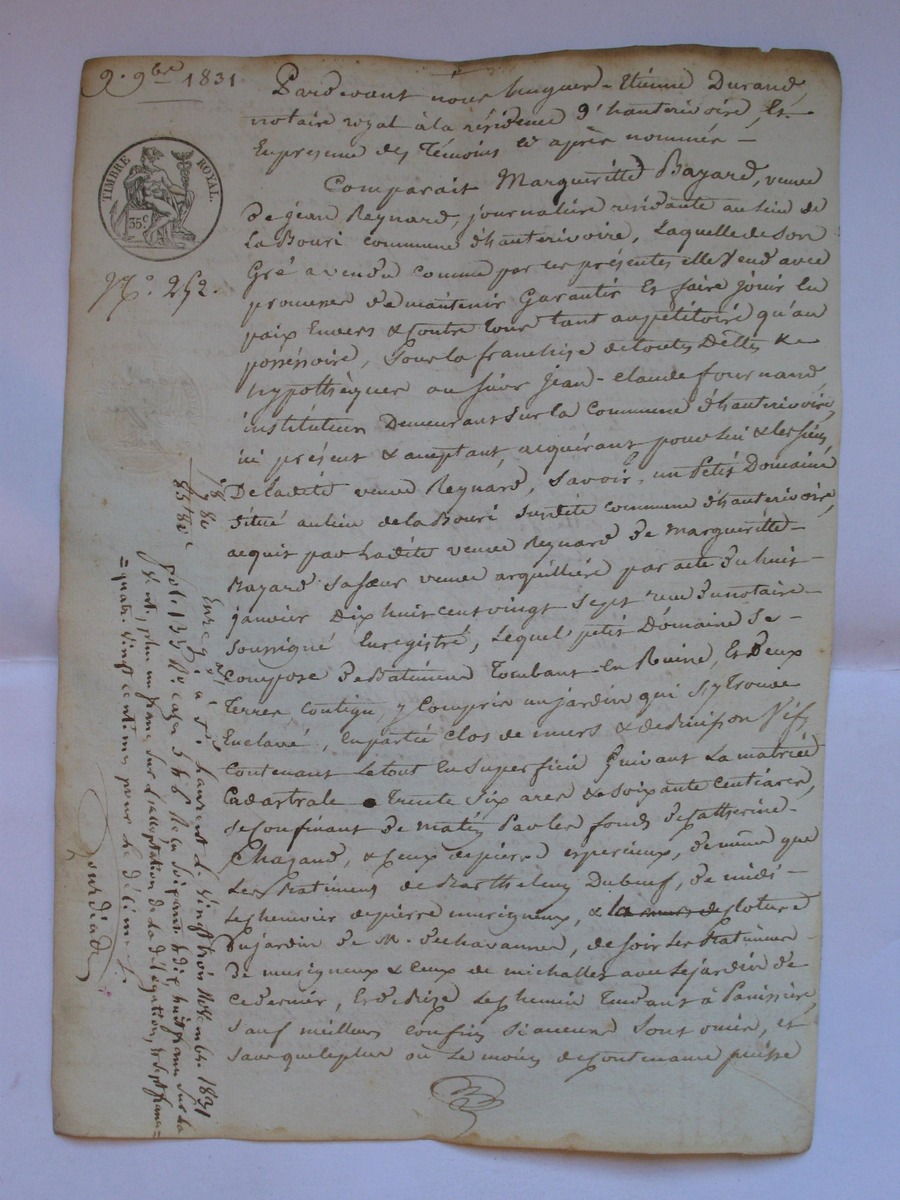 9. 9bre 1831
Pardevant nous hugues-Etienne Durand,
notaire royal à la résidence d'hauterivoire, Et
En presence des Témoins cy après nommés -
TIMBRE ROYAL.
35c
No. 252.
Comparait Margueritte Bazard, veuve
De jean Reynard, journalière residante au lieu de
La Bouri commune d'hauterivoire, Laquelle de son
Gré a vendu comme par ces présentes elle Vend avec
promesse De maintenir Garantir Et faire jouir En
paix Envers & Contre Tous tant au pétitoire qu'au
posséssoire, Sous la franchise de toutes Dettes &
hypothèques au sieur Jean-Claude fournand
instituteur Demeurant Sur la Commune d'hauterivoire,
ici présent & acceptant, acquérant pour lui & les siens
De Ladite veuve Reynard, Savoir, un Petit Domaine
Situé au lieu de la Bouri Susdite commune d'hauterivoire,
acquis par Ladite veuve Reynard De Margueritte
Bazard Sa sœur veuve arquillière par acte du huit
janvier Dix huit cent vingt Sept reçu du notaire
Soussigné Enregistré, Lequel petit Domaine Se
Compose De Batiments Tombant En Ruine, Et Deux
Terres Contigu, y Compris un jardin qui S'y Trouve
Enclavé, En partie Clos de murs & de Buisson Vif,
Contenant Le tout En Superficie Suivant La matrice
Cadastrale Trente Six ares & Soixante Centiares,
Se Confinant De matin Par les fonds De Catherine
Chazaud, & Ceux de pierre De même que
Les Batiments de Barthelemy Duboeuf, De midi
Le chenevier de pierre murigneux, & la cloture
Du jardin De M. Dechavannes, de Soir Les Batiments
De murigneux & Ceux de michalles avec Le jardin De
Ce dernier, Et de Bize Le chemin Tendant à Panissière
Sauf meilleurs Confins Si aucuns Sont omis, et
Sans que le plus ou Le moins de Contenance puisse
Enregé à St Laurent Le Vingt trois Novembre 1831
fol. 135 Ro. cases 5 & 6 Reçu Soixante & dix huit francs Sur La
Vente, plus un franc Sur L'acceptation de La délégation, & Sept francs
quatre vingt centimes pour Le décime.